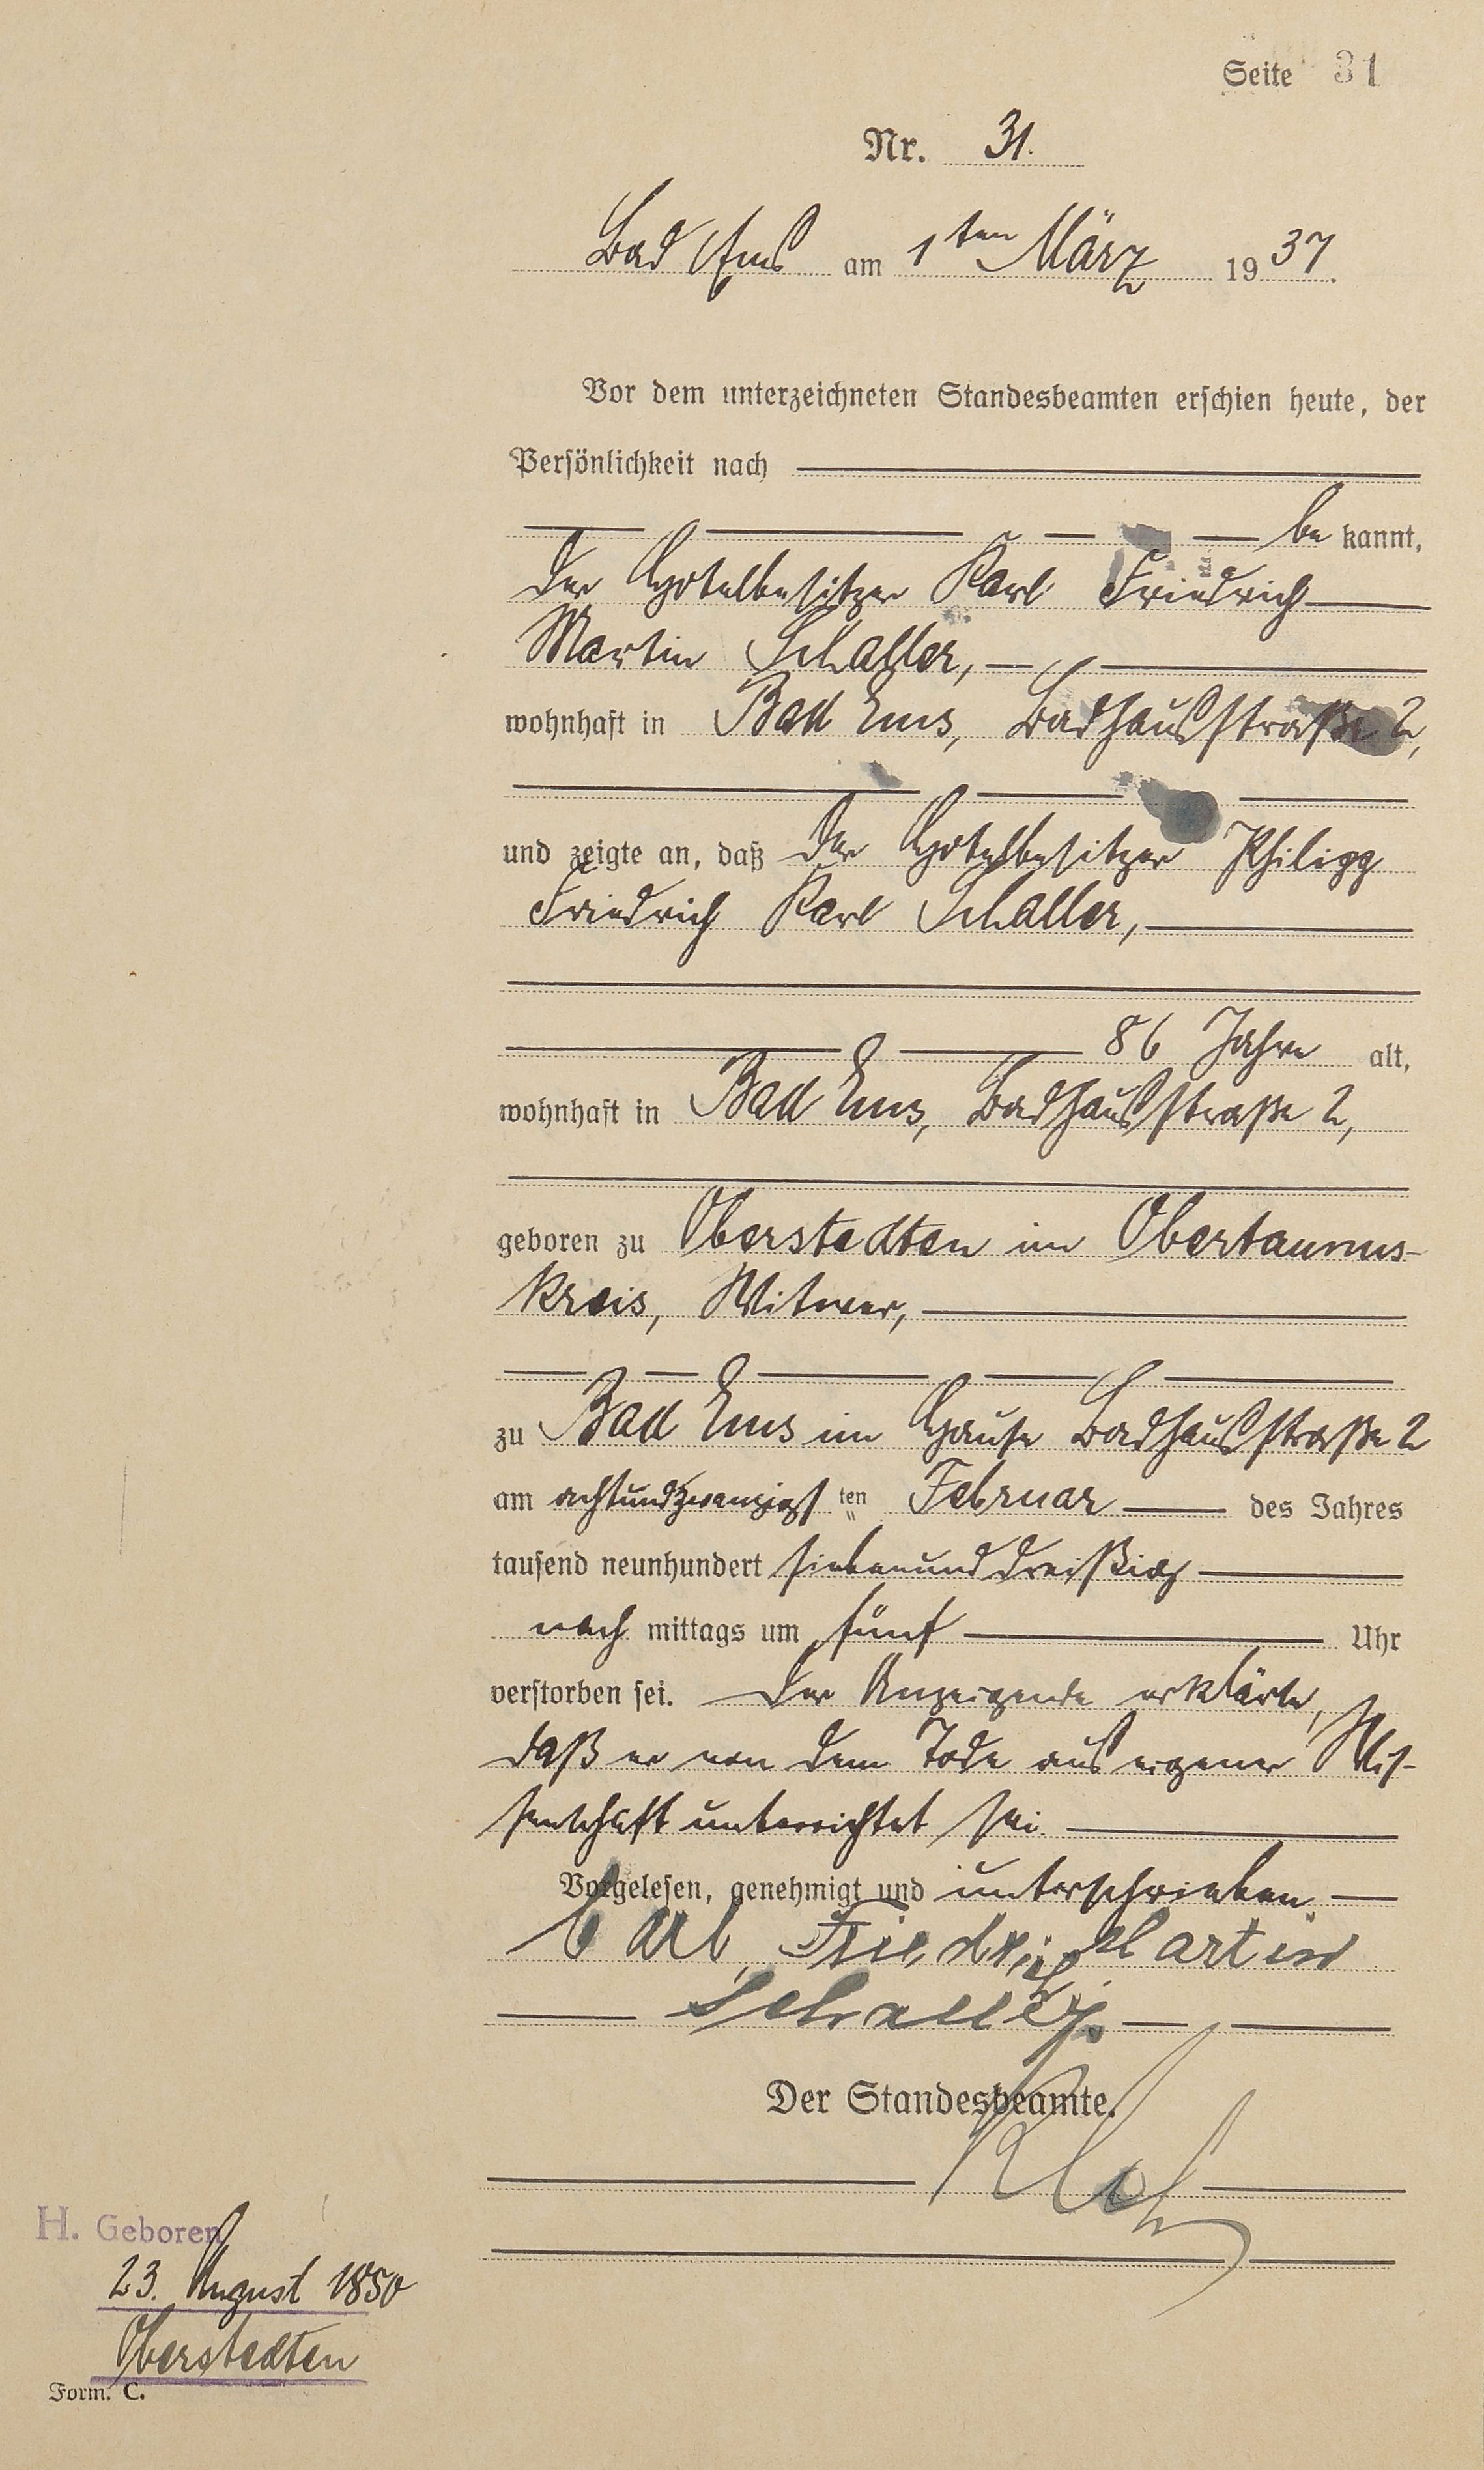 Seite 31
Nr. 31.
Bad Ems am 1ten März 1937.
Vor dem unterzeichneten Standesbeamten erschien heute, der
Persönlichkeit nach
be kannt,
der Hotelbesitzer Karl Friedrich
Martin Schaller,
wohnhaft in Bad Ems, Badhausstraße 2,
und zeigte an, daß der Hotelbesitzer Philipp
Friedrich Karl Schaller,
86 Jahre alt,
wohnhaft in Bad Ems, Badhausstraße 2,
geboren zu Oberstedten im Obertaunus-
kreis, Witwer,
zu Bad Ems im Hause Badhausstraße 2
am achtundzwanzigst ten Februar des Jahres
tausend neunhundert siebenunddreißig
nach mittags um fünf Uhr
verstorben sei. Der Anzeigende erklärte,
daß er von dem Tode aus eigener Wis-
senschaft unterrichtet sei.
Vorgelesen, genehmigt und unterschrieben
Carl Friedrich Martin
Schaller.
Der Standesbeamte.
H. Geboren
23. August 1850
Oberstedten
Form. C.